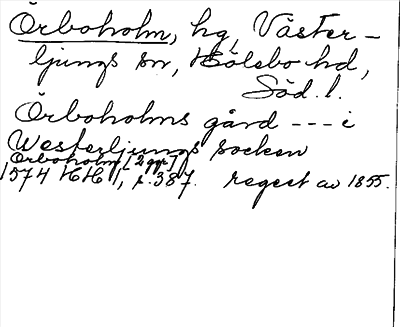 Örboholm, hg, Väster-
ljungs sn, Hölebo hd,
Söd. l.
Örboholms gård --- i
Westerljungs socken
Örboholm [2 ggr]
1574 HH 1, s. 387. regest av 1855.